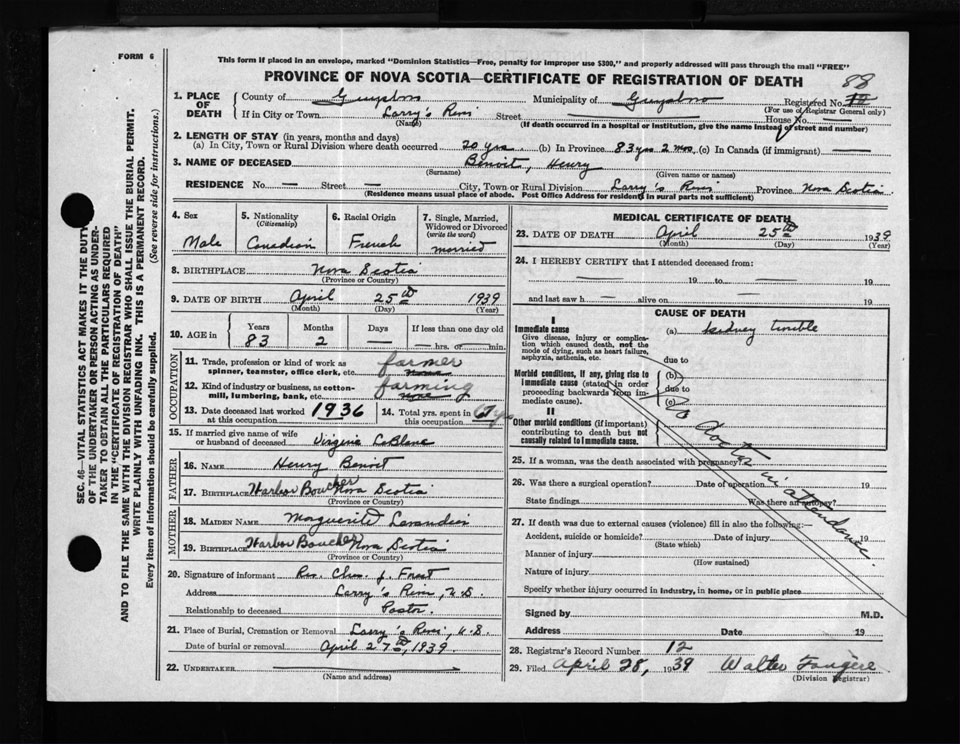 FORM 6
This form if placed in an envelope, marked "Dominion Statistics—Free, penalty for improper use $300," and properly addressed will pass through the mail "FREE"
PROVINCE OF NOVA SCOTIA—CERTIFICATE OF REGISTRATION OF DEATH
88
1. PLACE OF DEATH
County of Guysboro Municipality of Guysboro Registered No. 12
(For use of Registrar General only)
If in City or Town Larry's River Street House No.
(Name) (If death occurred in a hospital or institution, give the name instead of street and number)
2. LENGTH OF STAY (in years, months and days)
(a) In City, Town or Rural Division where death occurred 20 yrs. (b) In Province 83 yrs 2 mos. (c) In Canada (if immigrant) —
3. NAME OF DECEASED Benoit, Henry
(Surname) (Given name or names)
RESIDENCE No. — Street — City, Town or Rural Division Larry's River Province Nova Scotia
(Residence means usual place of abode. Post Office Address for residents in rural parts not sufficient)
4. Sex
Male
5. Nationality
(Citizenship)
Canadian
6. Racial Origin
French
7. Single, Married, Widowed or Divorced
(write the word)
married
8. BIRTHPLACE Nova Scotia
(Province or Country)
9. DATE OF BIRTH April 25th 1939
(Month) (Day) (Year)
10. AGE in Years Months Days If less than one day old
83 2 — — hrs. or — min.
OCCUPATION
11. Trade, profession or kind of work as spinner, teamster, office clerk, etc. farmer none
12. Kind of industry or business, as cotton-mill, lumbering, bank, etc. farming none
13. Date deceased last worked at this occupation 1936
14. Total yrs. spent in this occupation
15. If married give name of wife or husband of deceased Virginia LeBlanc
FATHER
16. NAME Henry Benoit
17. BIRTHPLACE Harbor Boucher Nova Scotia
(Province or Country)
MOTHER
18. MAIDEN NAME Marguerite
19. BIRTHPLACE Harbor Boucher Nova Scotia
(Province or Country)
20. Signature of informant Rev. Chas. J. Frest
Address Larry's River, N.S.
Relationship to deceased Pastor.
21. Place of Burial, Cremation or Removal Larry's River, N.S.
Date of burial or removal April 27th, 1939.
22. UNDERTAKER —
(Name and address)
MEDICAL CERTIFICATE OF DEATH
23. DATE OF DEATH April 25th 1939
(Month) (Day) (Year)
24. I HEREBY CERTIFY that I attended deceased from:
— 19 to — 19
and last saw h — alive on — 19
CAUSE OF DEATH
I
Immediate cause
Give disease, injury or complication which caused death, not the mode of dying, such as heart failure, asphyxia, asthenia, etc.
(a) kidney trouble
due to
Morbid conditions, if any, giving rise to immediate cause (stated in order proceeding backwards from immediate cause).
(b)
due to
(c)
II
Other morbid conditions (if important) contributing to death but not causally related to immediate cause.
No doctor in attendance.
25. If a woman, was the death associated with pregnancy?
26. Was there a surgical operation? Date of operation 19
State findings Was there an autopsy?
27. If death was due to external causes (violence) fill in also the following:—
Accident, suicide or homicide? Date of injury 19
(State which)
Manner of injury
(How sustained)
Nature of injury
Specify whether injury occurred in industry, in home, or in public place
Signed by M.D.
Address Date 19
28. Registrar's Record Number 12
29. Filed April 28, 1939 Walter Fougere
(Division Registrar)
SEC. 46—VITAL STATISTICS ACT MAKES IT THE DUTY
OF THE UNDERTAKER OR PERSON ACTING AS UNDER-
TAKER TO OBTAIN ALL THE PARTICULARS REQUIRED
IN THE "CERTIFICATE OF REGISTRATION OF DEATH"
AND TO FILE THE SAME WITH THE DIVISION REGISTRAR WHO SHALL ISSUE THE BURIAL PERMIT.
WRITE PLAINLY WITH UNFADING INK. THIS IS A PERMANENT RECORD.
Every item of information should be carefully supplied. (See reverse side for instructions.)